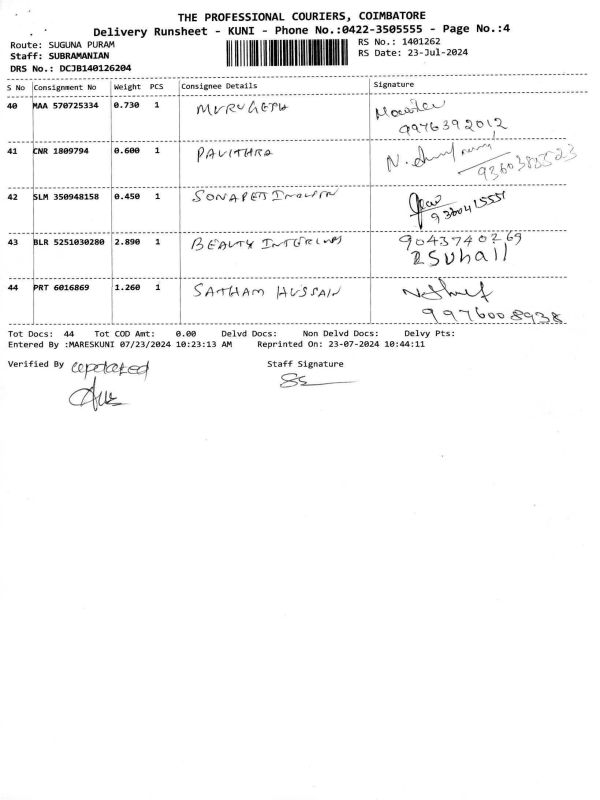 THE PROFESSIONAL COURIERS, COIMBATORE
Delivery Runsheet - KUNI - Phone No.:0422-3505555 - Page No.:4
Route: SUGUNA PURAM RS No.: 1401262
Staff: SUBRAMANIAN RS Date: 23-Jul-2024
DRS No.: DCJB140126204
S No Consignment No Weight PCS Consignee Details Signature
40 MAA 570725334 0.730 1 MURUGESH
9976392012
41 CNR 1809794 0.600 1 PAVITHRA
9360385523
42 SLM 350948158 0.450 1
43 BLR 5251030280 2.890 1 BEAUTY 9043740269
Suhail
44 PRT 6016869 1.260 1 SATHAM HUSSAIN
9976008938
Tot Docs: 44 Tot COD Amt: 0.00 Delvd Docs: Non Delvd Docs: Delvy Pts:
Entered By :MARESKUNI 07/23/2024 10:23:13 AM Reprinted On: 23-07-2024 10:44:11
Verified By updated Staff Signature